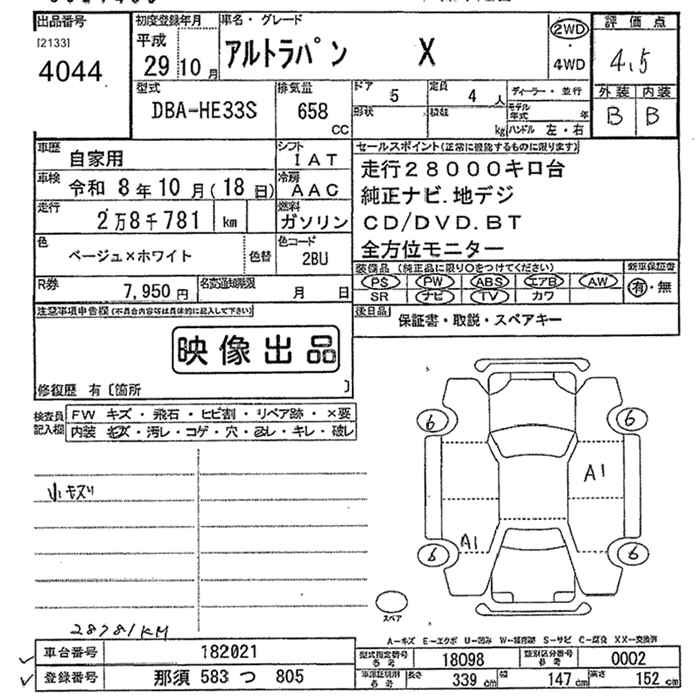 出品番号 初度登録年月 車名・グレード 2WD 評価点
[2133] 平成
4044 29年10月 アルトラパン X ・4WD 4.5
型式 排気量 ドア 定員 ディーラー・並行 外装 内装
DBA-HE33S 658 CC 5 4人 モデル年式 年 B B
形状 積載 kg ハンドル 左・右
車歴 自家用 シフト IAT セールスポイント(正常に機能するものに限ります)
車検 令和8年10月(18日) 冷房 AAC 走行28000キロ台
走行 2万8千781 km 燃料 ガソリン 純正ナビ.地デジ
CD/DVD.BT
色 ベージュ×ホワイト 色替 色コード 2BU 全方位モニター
R券 7,950円 名変通知期限 月 日 装備品 (純正品に限り○をつけてください) 新車保証書
PS PW ABS エアB AW 有・無
SR ナビ TV カワ
注意事項申告欄(不具合内容等は具体的に記入して下さい) 後日品 保証書・取説・スペアキー
映像出品
修復歴 有〔箇所 〕
検査員記入欄 FW キズ・飛石・ヒビ割・リペア跡・×要
内装 キズ・汚レ・コゲ・穴・スレ・キレ・破レ
小キズ
6 6
A1
A1
6 6
スペア
28781KM
A-キズ E-エクボ U-凹み W-補修跡 S-サビ C-腐食 XX-交換済
車台番号 182021 型式指定番号 参考 18098 類別区分番号 参考 0002
登録番号 那須 583 つ 805 車検証明細 参考 長さ 339cm 幅 147cm 高さ 152cm